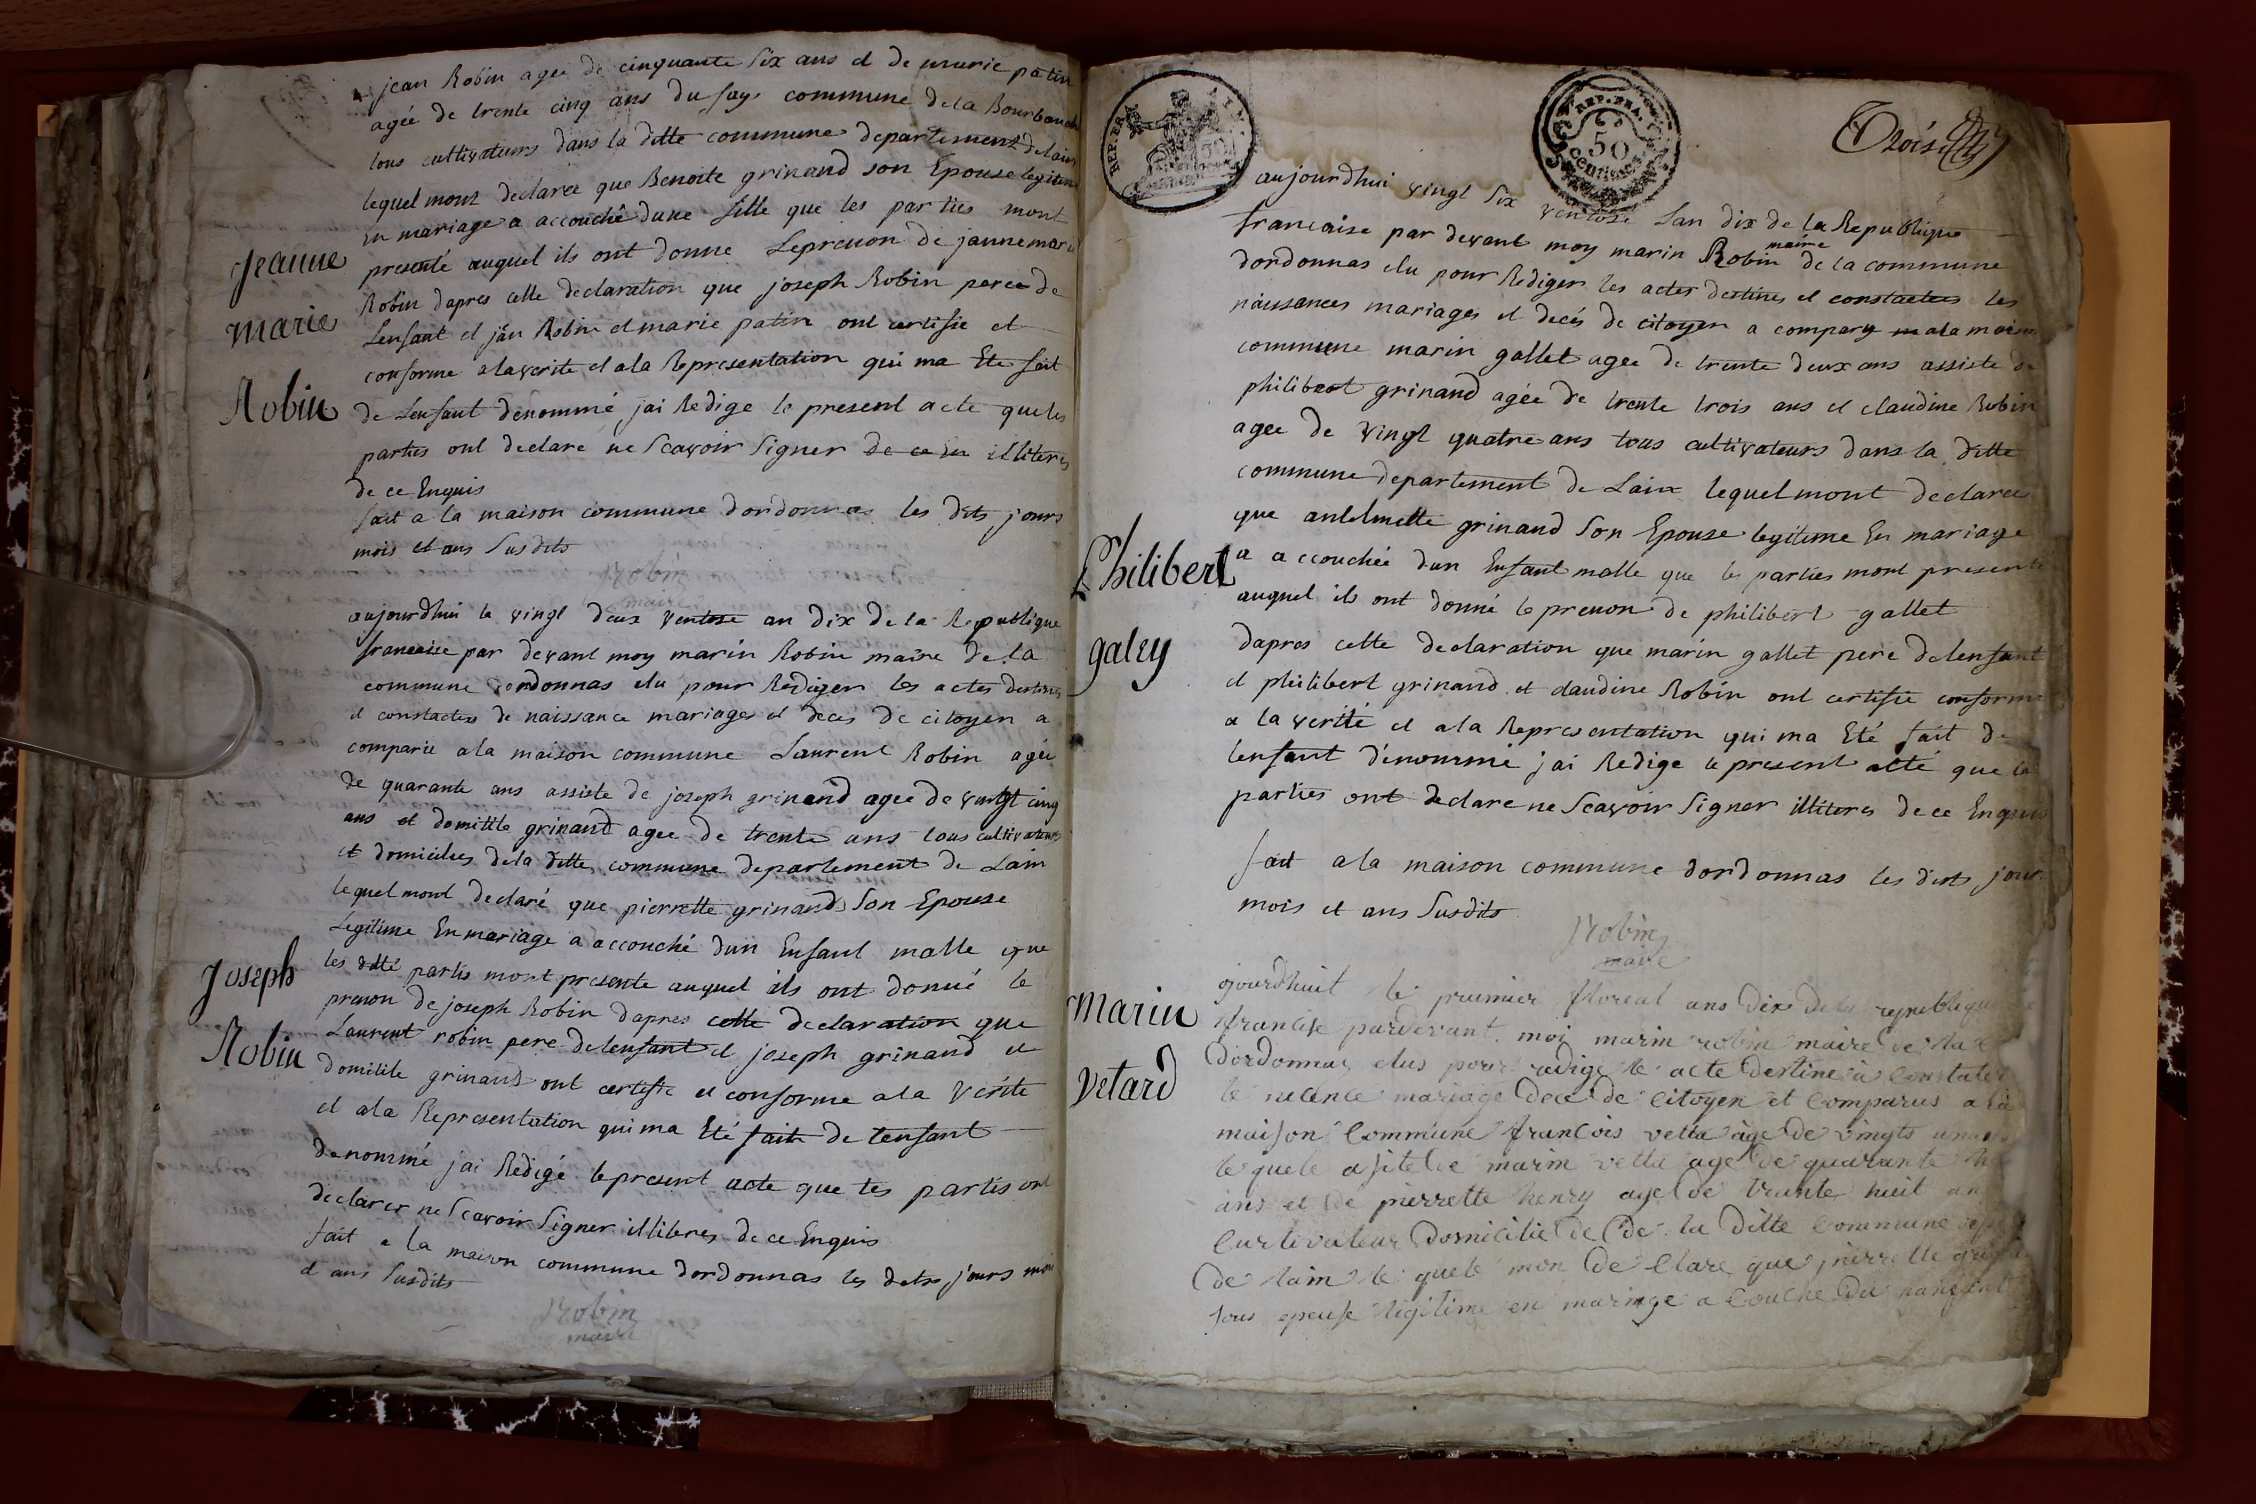 jean Robin agee de cinquante six ans et de marie patin
agée de trente cinq ans du fays commune de la Bourbouch
tous cultivateurs dans la ditte commune departement de lain
lequel mont declaree que Benoite grinand son Epouse legitime
En mariage a accouché dune fille que les parties mont
presenté auquel ils ont donne Leprenon de janne marie
Jeanne
marie
Robin
Robin dapres celle declaration que joseph Robin peree de
Lenfant et jan Robin et marie patin ont certifie et
conforme a la verite et a la Representation qui ma Ete fait
de Lenfant denommé jai Redige le present acte que les
parties ont declare ne Scavoir Signer de ce En illiteres
de ce Enquis
fait a la maison commune dordonnas les dits jours
mois et ans Susdits
Robin
maire
aujourdhui le vingt deux ventose an dix de la Republique
francaise par devant moy marin Robin maire de la
commune dordonnas elu pour Rediger les actes destines
et constactes de naissance mariages et deces de citoyen a
comparie a la maison commune Laurent Robin agée
de quarante ans assiste de joseph grinand agee de vingt cinq
ans et domitile grinand agee de trente ans tous cultivateurs
et domicilies de la ditte commune departement de Lain
lequel mont declaré que pierrette grinand Son Epouse
Legitime En mariage a accouché dun Enfant malle que
les ditte partis mont presente auquel ils ont donné le
Joseph
Robin
prenon de joseph Robin dapres celle declaration que
Laurent robin pere de lenfant et joseph grinand et
domitile grinand ont certifie et conforme a la vérite
et a la Representation qui ma Eté fait de lenfant
denommé jai Redigé le present acte que les partis ont
declarer ne Scavoir Signer illiteres de ce Enquis
fait a la maison commune dordonnas les dits jours mois
et ans Susdits
Robin
maire
REP. FRA.
REP. FRA.
50
centimes
Trois
aujourdhui vingt Six ventose Lan dix de la Republique
francaise par devant moy marin Robin maire de la commune
dordonnas elu pour Rediger les actes destines et constactes les
naissances mariages et decés de citoyen a compary a la maison
commune marin gallet agee de trente deux ans assiste de
philibert grinand agée de trente trois ans et claudine Robin
agee de vingt quatre ans tous cultivateurs dans la ditte
commune departement de Lain lequel mont declaree
que antelmette grinand Son Epouse legitime En mariage
a accouchée dun Enfant malle que les parties mont presente
auquel ils ont donné le prenon de philibert gallet
Philibert
galey
dapres celle declaration que marin gallet pere de lenfant
et philibert grinand et claudine Robin ont certifie conforme
a la verité et a la Representation qui ma Eté fait de
lenfant dénommé jai Redige le present acté que les
parties ont declare ne Scavoir Signer illiteres de ce Enquis
fait a la maison commune dordonnas les dits jour
mois et ans Susdits
Robin
maire
Marin
Vetard
ojourdhuit le prumier floreal ans dix de la republique
francise pardevant moi marin robin maire de la
Dordonnas elus pour redige le acte destine a Constater
le mariage dece de Citoyen et Comparus a la
maison Commune francois vetta age de vingts
le quele asite de marin vetta age de quarante
ans et de pierrette henry age de trante huit an
Curtivateur domicilie de de la ditte Commune
de lain le quele mon de Clare que pierrette
sous epeuse ligitime en mariage a Couche